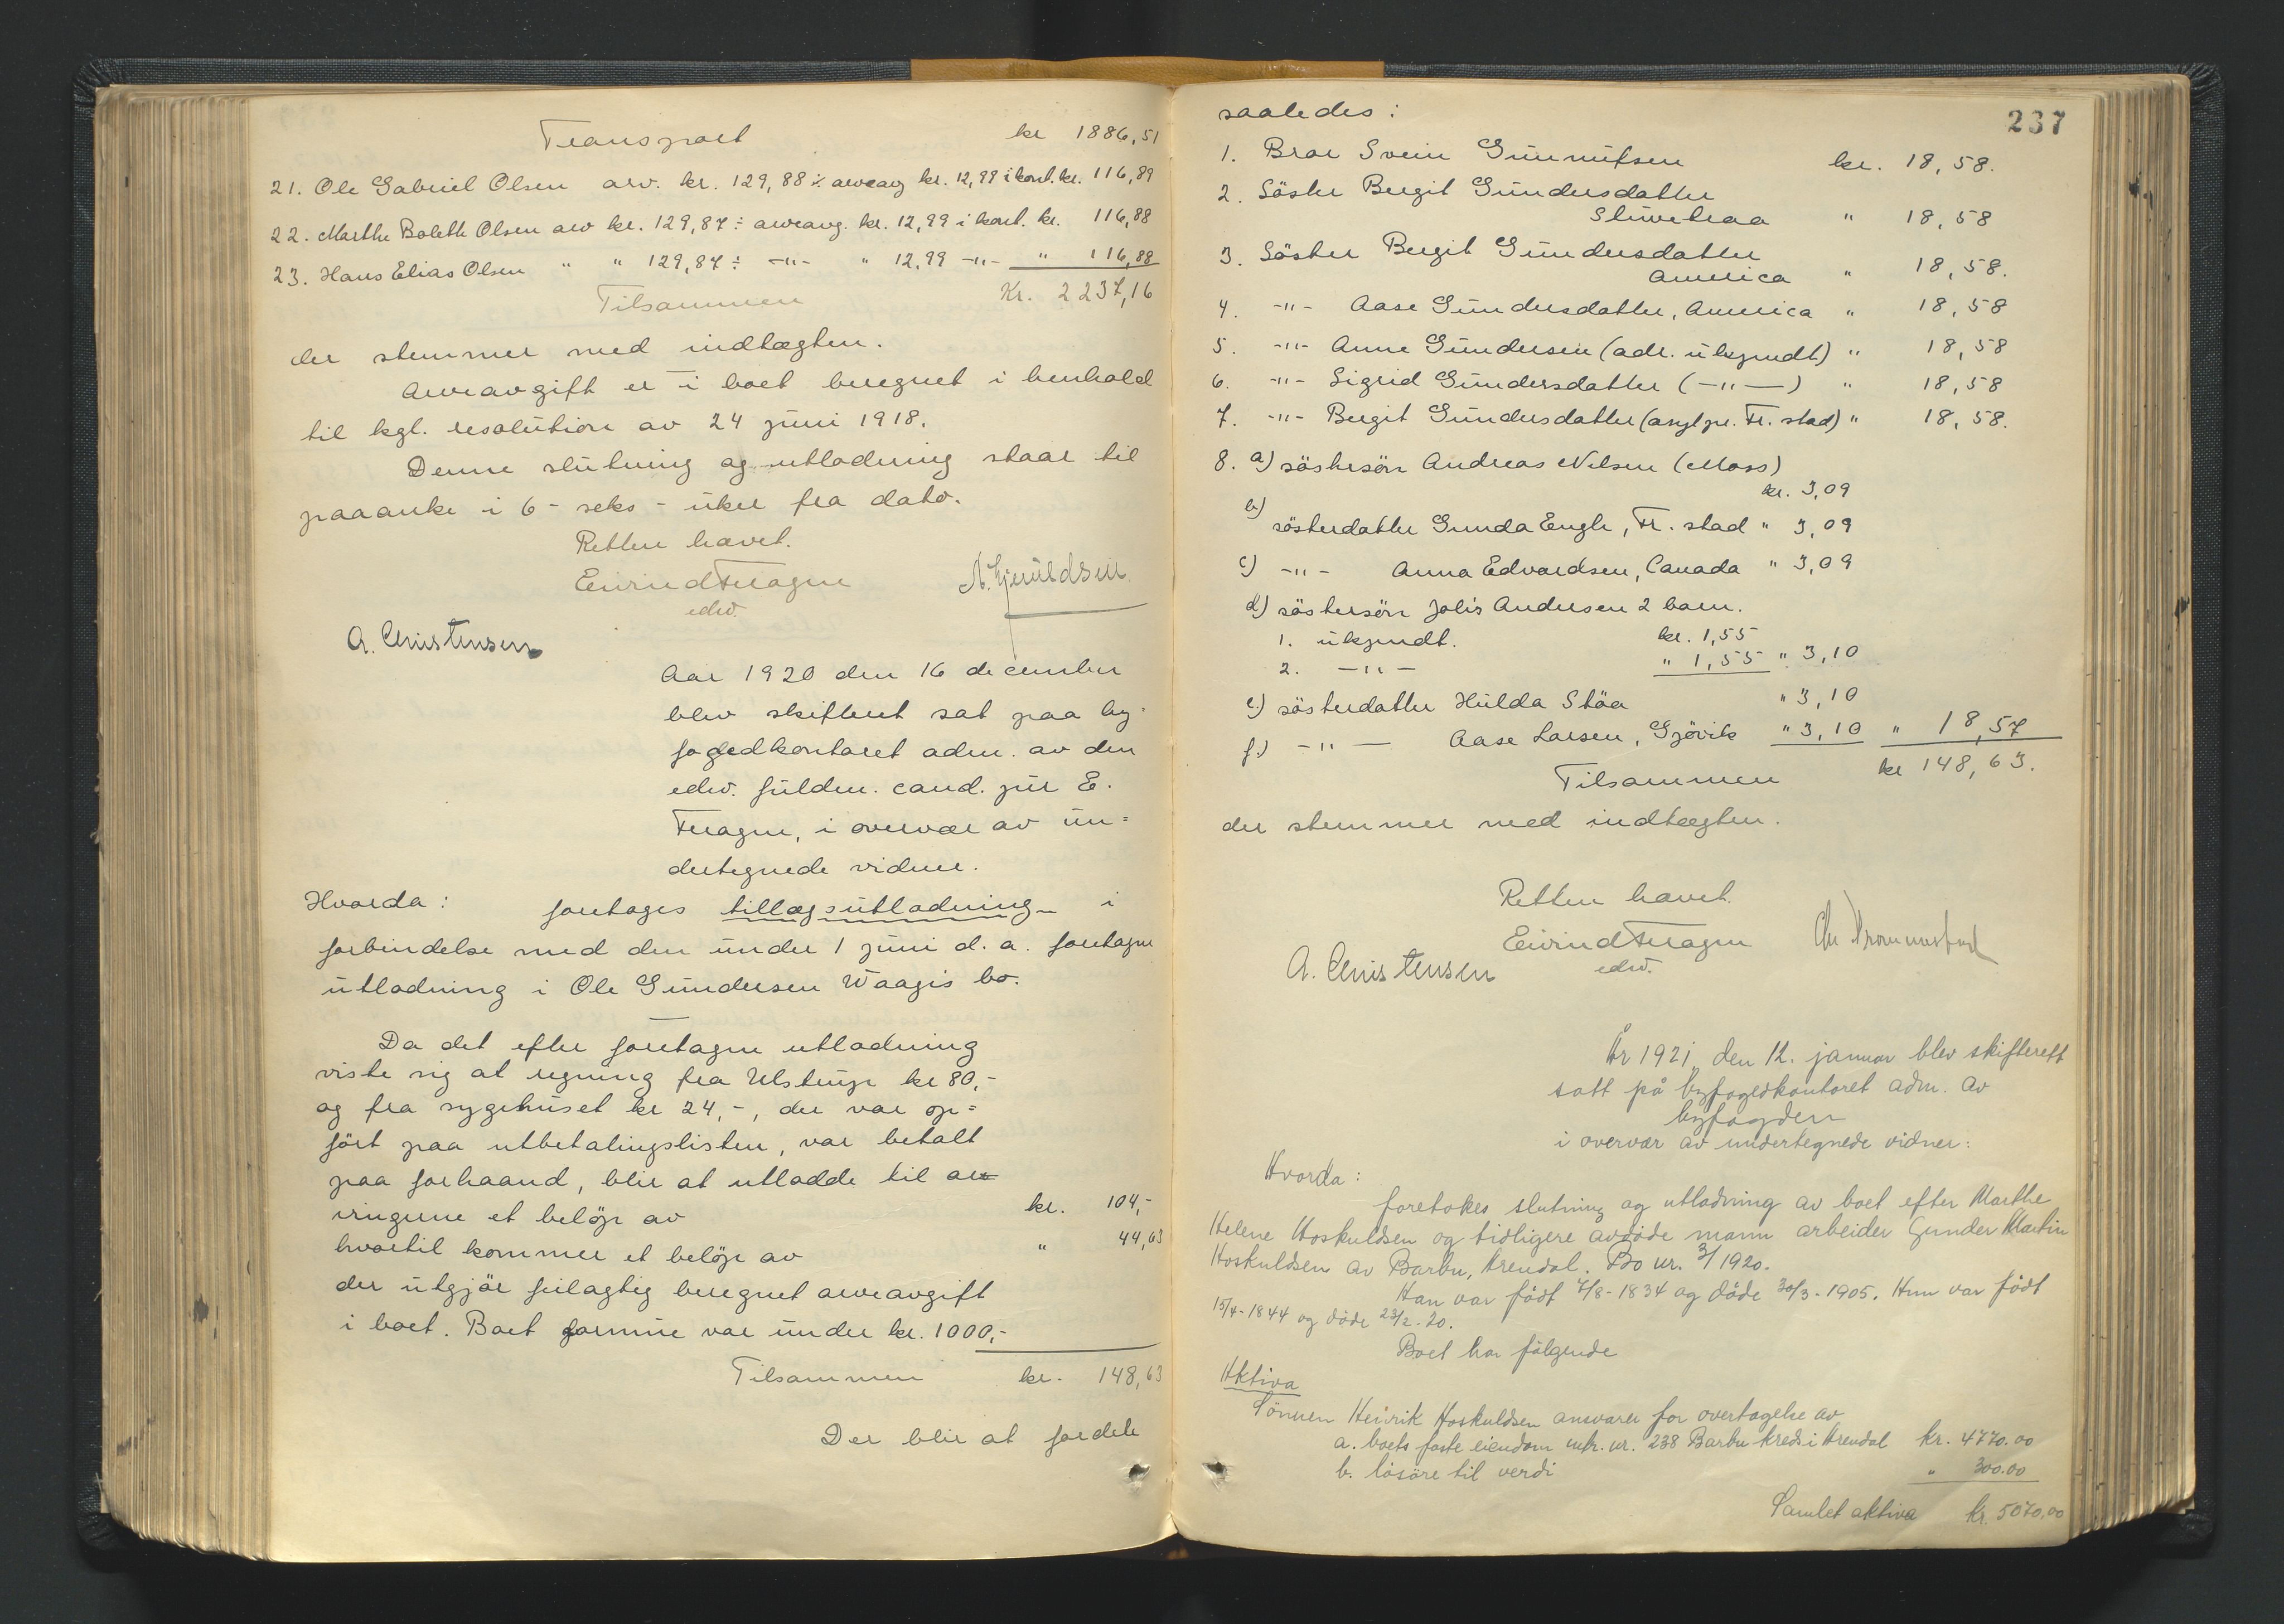 Transport kr 1886,51
21. Ole Gabriel Olsen arv. kr. 129,88 ÷ arveavg kr. 12,99 i kont. kr. 116,89
22. Marthe Bolette Olsen arv kr. 129,87 ÷ arveavg. kr. 12,99 i kont. kr. 116,88
23. Hans Elias Olsen " " 129,87 ÷ -"- " 12,99 -"- " 116,88
Tilsammen Kr. 2237,16
der stemmer med indtægten.
Arveavgift er i boet beregnet i henhold
til kgl. resolution av 24 juni 1918.
Denne slutning og utlodning staar til
paaanke i 6 - seks - uker fra dato.
Retten hævet.
Eivind Tragen
edsv.
A. Christensen
Aar 1920 den 16 december
blev skifteret sat paa by-
fogedkontoret adm. av den
edsv. fuldm. cand. jur E.
Tragen, i overvær av un=
dertegnede vidner.
Hvorda: foretages tillægsutlodning i
forbindelse med den under 1 juni d. a. foretagne
utlodning i Ole Gundersen Waagis bo.
Da det efter foretagen utlodning
viste sig at regning fra Ulstrup kr 80,-
og fra sygehuset kr 24,-, der var op=
ført paa utbetalingslisten, var betalt
paa forhaand, blir at utlodde til ar
vingerne et beløp av kr. 104,-
hvortil kommer et beløp av " 44,63
der utgjør feilagtig beregnet arveavgift
i boet. Boet formue var under kr. 1000,-
Tilsammen kr. 148,63
Der blir at fordele
237
saaledes:
1. Bror Svein Gunnufsen kr. 18,58.
2. Søster Bergit Gundersdatter
" 18,58
3. Søster Bergit Gundersdatter
America " 18,58.
4. -"- Aase Gundersdatter, America " 18,58
5. -"- Anne Gundersen (adr. ukjendt) " 18,58
6. -"- Sigrid Gundersdatter (-"-) " 18,58
7. -"- Bergit Gundersdatter (asyl pr. Fr. stad) " 18,58.
8. a) søstersøn Andreas Nilsen (Moss)
kr. 3,09
b) søsterdatter Gunda Engh, Fr. stad " 3,09
c) -"- Anna Edvardsen, Canada " 3,09
d) søstersøn Andersen 2 barn.
1. ukjendt. kr. 1,55
2. -"- " 1,55 " 3,10
e.) søsterdatter Hulda Støa " 3,10
f.) -"- Aase Larsen, Gjøvik " 3,10 " 18,57
Tilsammen kr 148,63.
der stemmer med indtægten.
Retten hævet.
Eivind Tragen
edsv.
A. Christensen
År 1921, den 12. januar blev skifterett
satt på byfogedkontoret adm. av
byfogden
i overvær av undertegnede vidner:
Hvorda:
foretokes slutning og utlodning av boet efter Marthe
Helene Hoskuldsen og tidligere avdøde mann arbeider Gunder Martin
Hoskuldsen av Barbu, Arendal. Bo nr. 3/1920.
Han var født 7/8-1834 og døde 30/3-1905. Hun var født
15/4-1844 og døde 23/2-20.
Boet har følgende
Aktiva
Sønnen Henrik Hoskuldsen ansvarer for overtagelse av
a. boets faste eiendom mtr. nr. 238 Barbu kreds i Arendal kr. 4770.00
b. løsøre til verdi " 300.00
Samlet aktiva kr. 5070.00